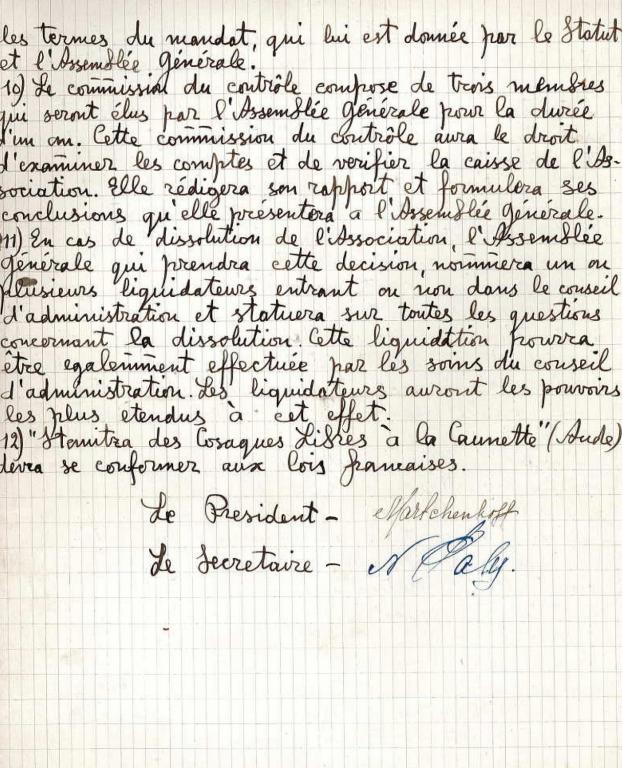 les termes du mandat, qui lui est donnée par le Statut
et l'Assemblée Générale.
10) Le commission du contrôle compose de trois membres
qui seront élus par l'Assemblée Générale pour la durée
d'un an. Cette commission du contrôle aura le droit
d'examiner les comptes et de verifier la caisse de l'As-
sociation. Elle rédigera son rapport et formulera ses
conclusions qu'elle présentera a l'Assemblée Générale.
11) En cas de dissolution de l'Association, l'Assemblée
Générale qui prendra cette decision, nommera un ou
plusieurs liquidateurs entrant ou non dans le conseil
d'administration et statuera sur toutes les questions
concernant la dissolution. Cette liquidation pourra
être egalemment effectuée par les soins du conseil
d'administration. Les liquidateurs auront les pouvoirs
les plus etendus à cet effet.
12) "Stanitza des Cosaques Libres à la Caunette" (Aude)
devra se conformer aux lois francaises.
Le President - Martchenkoff
Le Secretaire - N